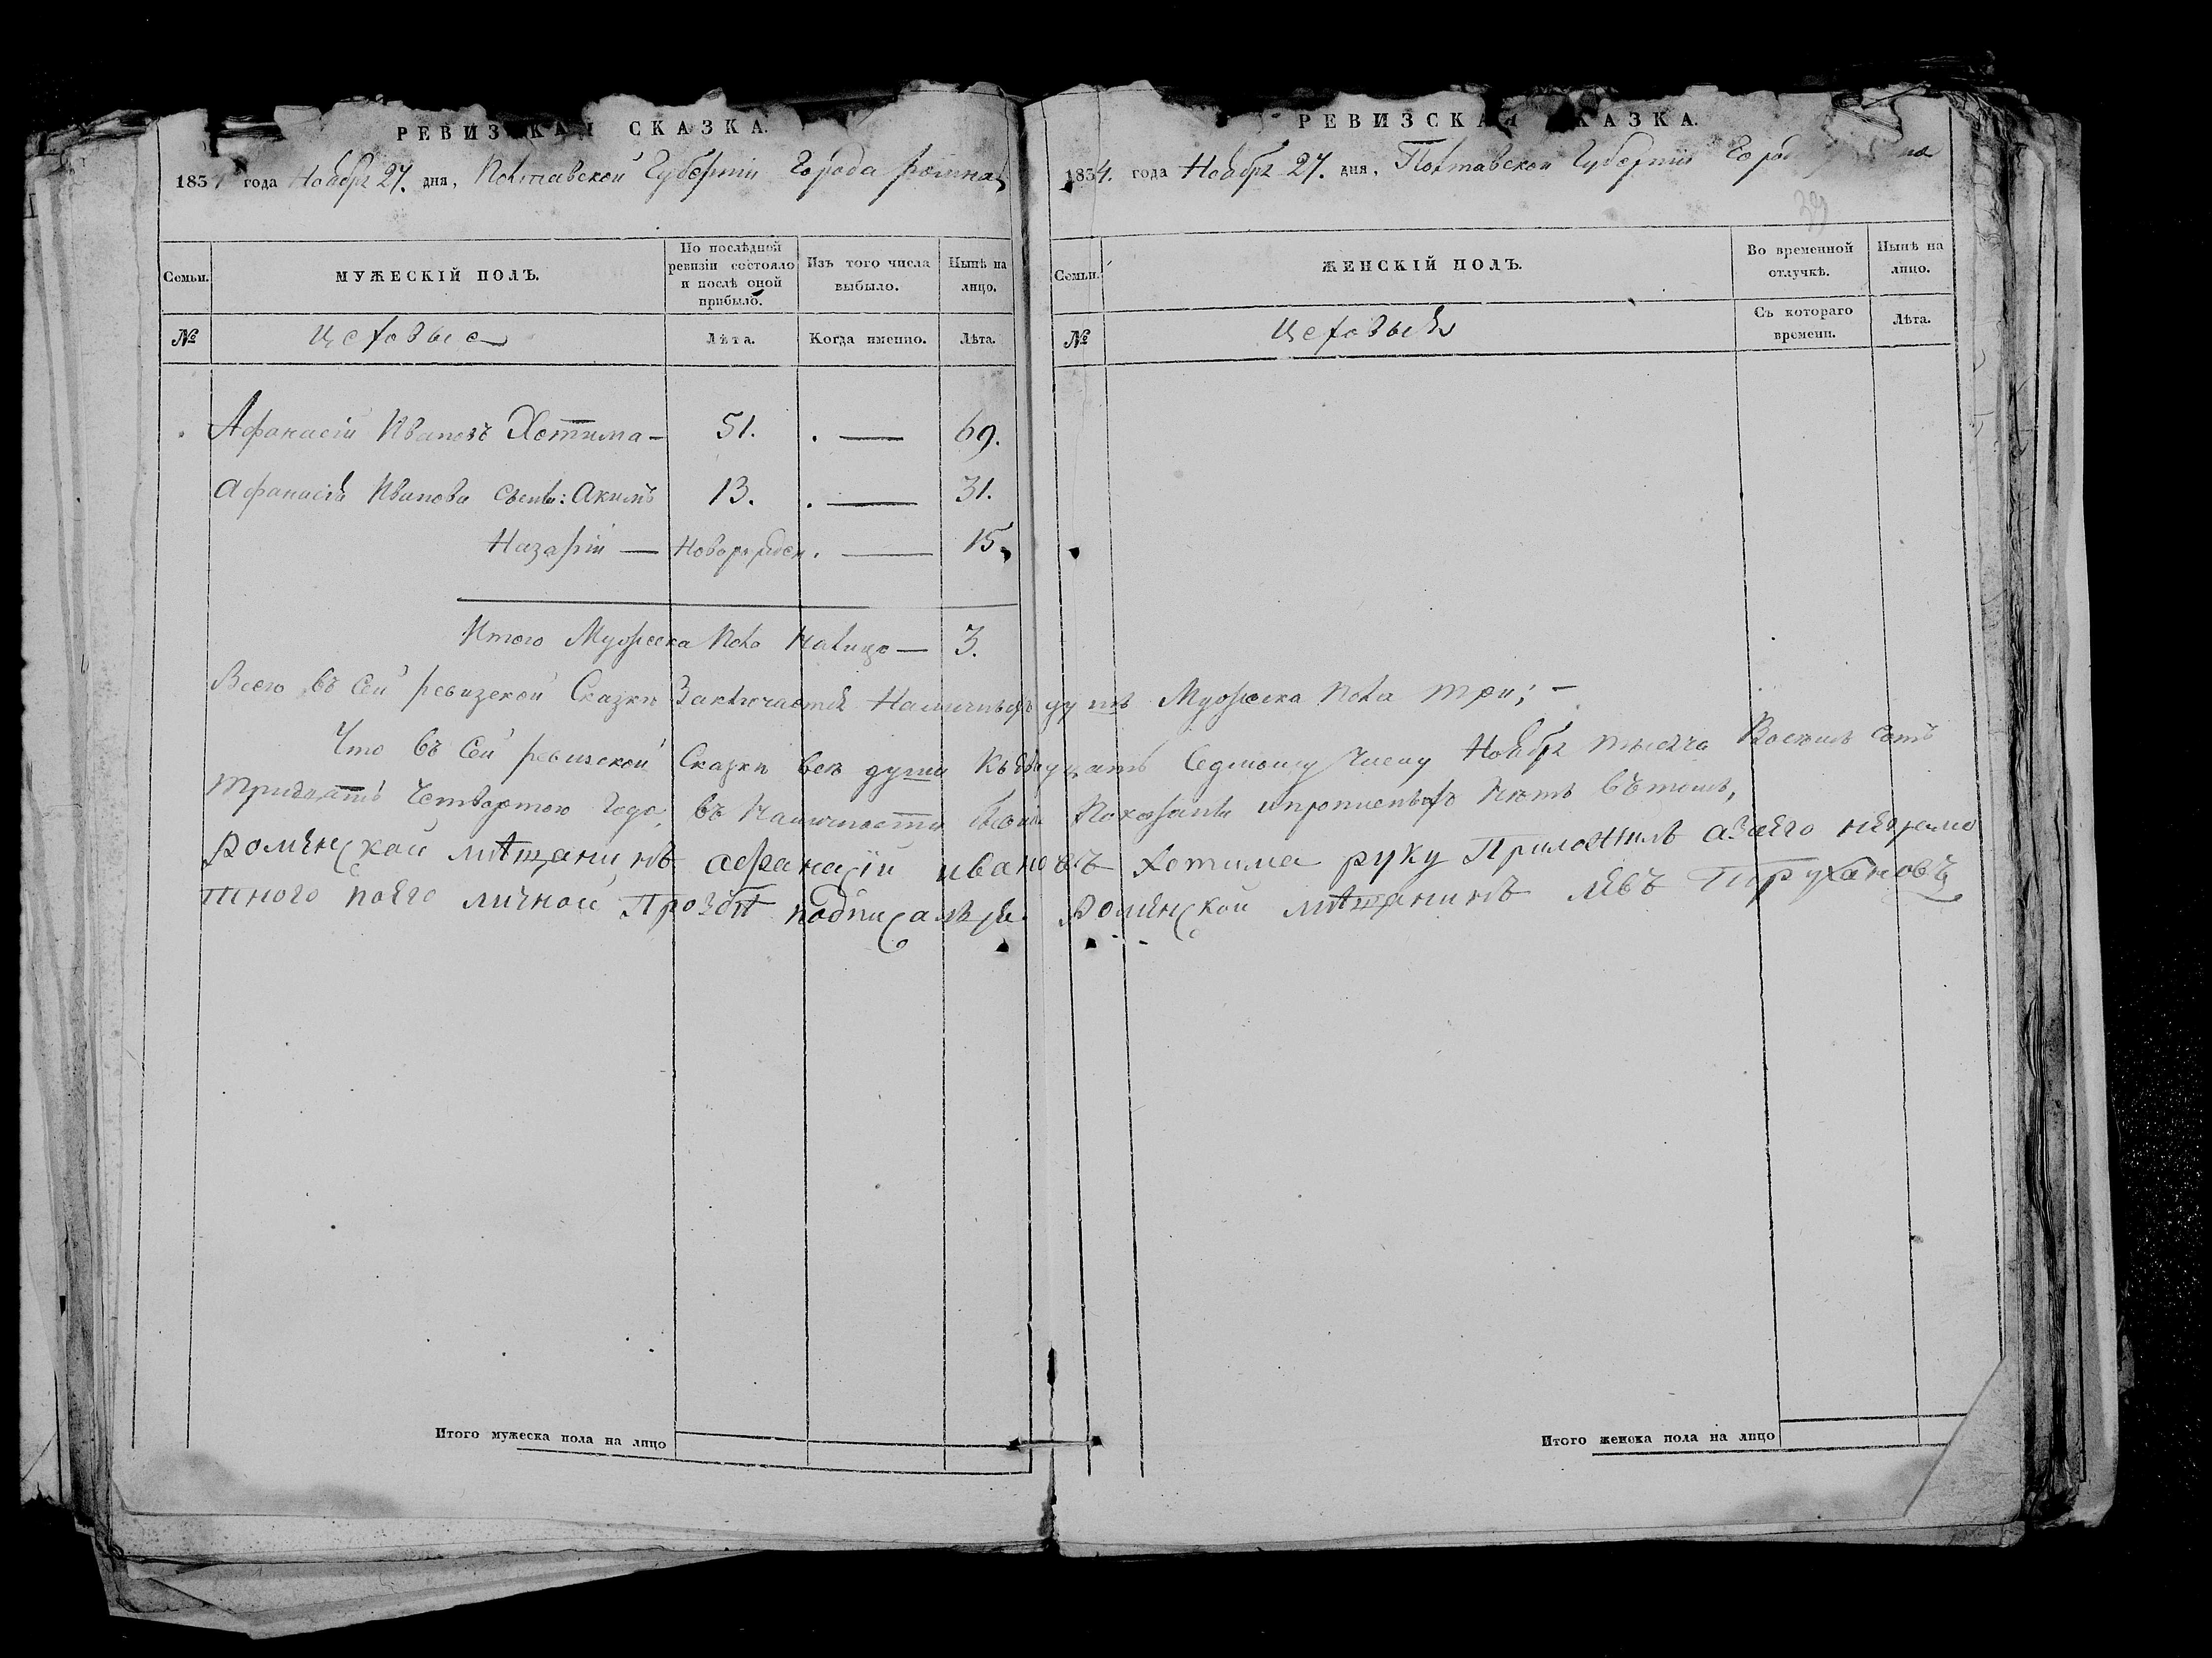 РЕВИЗСКАЯ СКАЗКА.
1834 года Ноября 27. дня, Полтавской Губерніи Города Ромна
Семьи.
МУЖЕСКІЙ ПОЛЪ.
По послѣдней ревизіи состояло и послѣ оной прибыло.
Изъ того числа выбыло.
Нынѣ на лицо.
№
Цеховые
Лѣта.
Когда именно.
Лѣта.
Афанасій Ивановъ Хотима — 51. — 69.
Афанасія Иванова сыны: Акимъ 13. — 31.
Назарій — Новорожден. — 15.
Итого Мужеска Пола Налицо — 3.
РЕВИЗСКАЯ СКАЗКА.
1834. года Ноября 27. дня, Полтавской Губерніи
39
Семьи.
ЖЕНСКІЙ ПОЛЪ.
Во временной отлучкѣ.
Нынѣ на лицо.
№
Цеховыя
Съ котораго времени.
Лѣта.
Всего въ Сей ревизской Сказкѣ Заключается Наличныхъ душъ Мужеска Пола три; —
Что въ Сей ревизской Сказкѣ всѣ души Къ двадцать Седмому Числу Ноября тысяча Восемь Сотъ
тридцать Четвертого Года, въ Наличности Показаны и прописныхъ Нѣтъ вътомъ,
Роменской мѣщанинъ афанасій ивановъ хотима руку Приложилъ азаего неграмо
тного поего личной Прозбѣ подписалъся Роменской мѣщанинъ
Итого мужеска пола на лицо
Итого женска пола на лицо